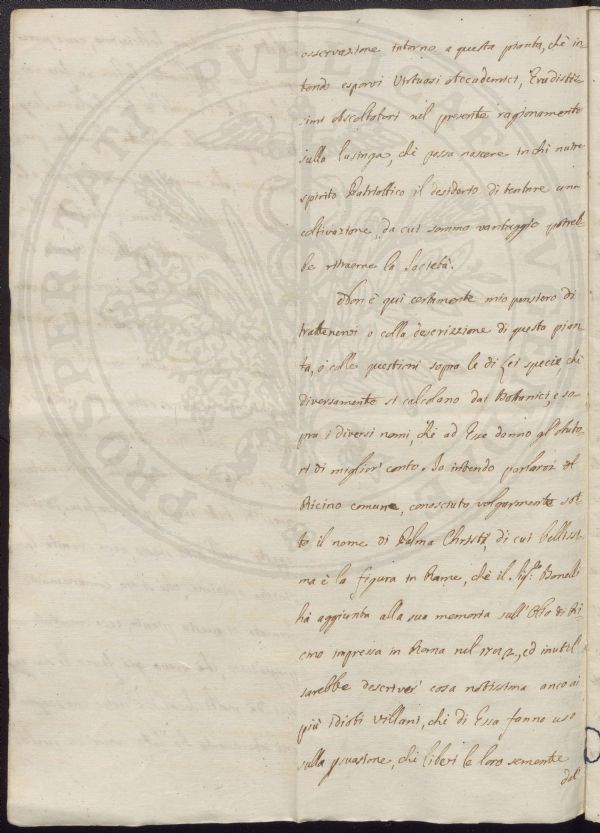 osservazione intorno a questa pianta, chè in
tendo esporvi Virtuosi Accademici, Eruditis
simi Ascoltatori nel presente ragionamento
sulla lusinga, chè possa nascere in chi nutre
spirito Patriottico il desiderio di tentare una
coltivazione, da cui sommo vantaggio potreb
be ritraerne la Società.
Non è qui certamente mio pensiero di
trattenervi o colla descrizzione di questa pian
ta, o colle questioni sopra le di Lei specie chi
diversamente si calcolano dai Bottanici, e so-
pra i diversi nomi, chè ad Esse danno gl'Auto
ri di miglior conto. Io intendo parlarvi del
Ricino comune, conosciuto volgarmente sot
to il nome di Palma Christi, di cui bellissi
ma è la figura in Rame, chè il Sig.r Bonelli
hà aggiunta alla sua memoria sull'Olio di Ri
cino impressa in Roma nel 1782., ed inutil
sarebbe descriver cosa notissima anco ai
più idioti villani, chè di Essa fanno uso
sulla psuasione, chè liberi le loro semente
dal
PROSPERITATI PUBLICAE